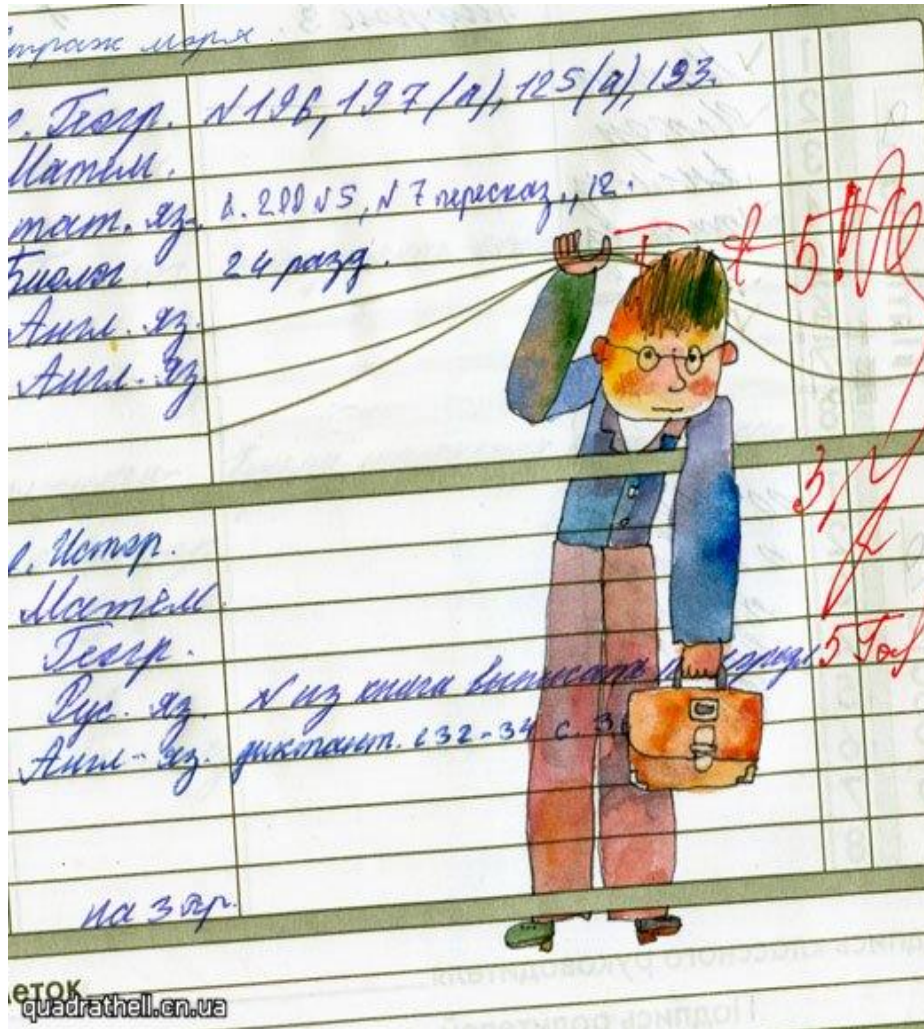 страж моря
с. Геогр. N196, 197(а), 125(а), 193.
Матем.
тат. яз. с. 200 N5, N7 пересказ., 12.
Биолог. 24 разд.
Англ. яз.
Англ. яз
5!
3
Истор.
Матем
Геогр.
5
Рус. яз. N из книга выписать
Англ-яз. диктант. с32-34 с. 3
на 3 пр.
еток
quadrathell.cn.ua